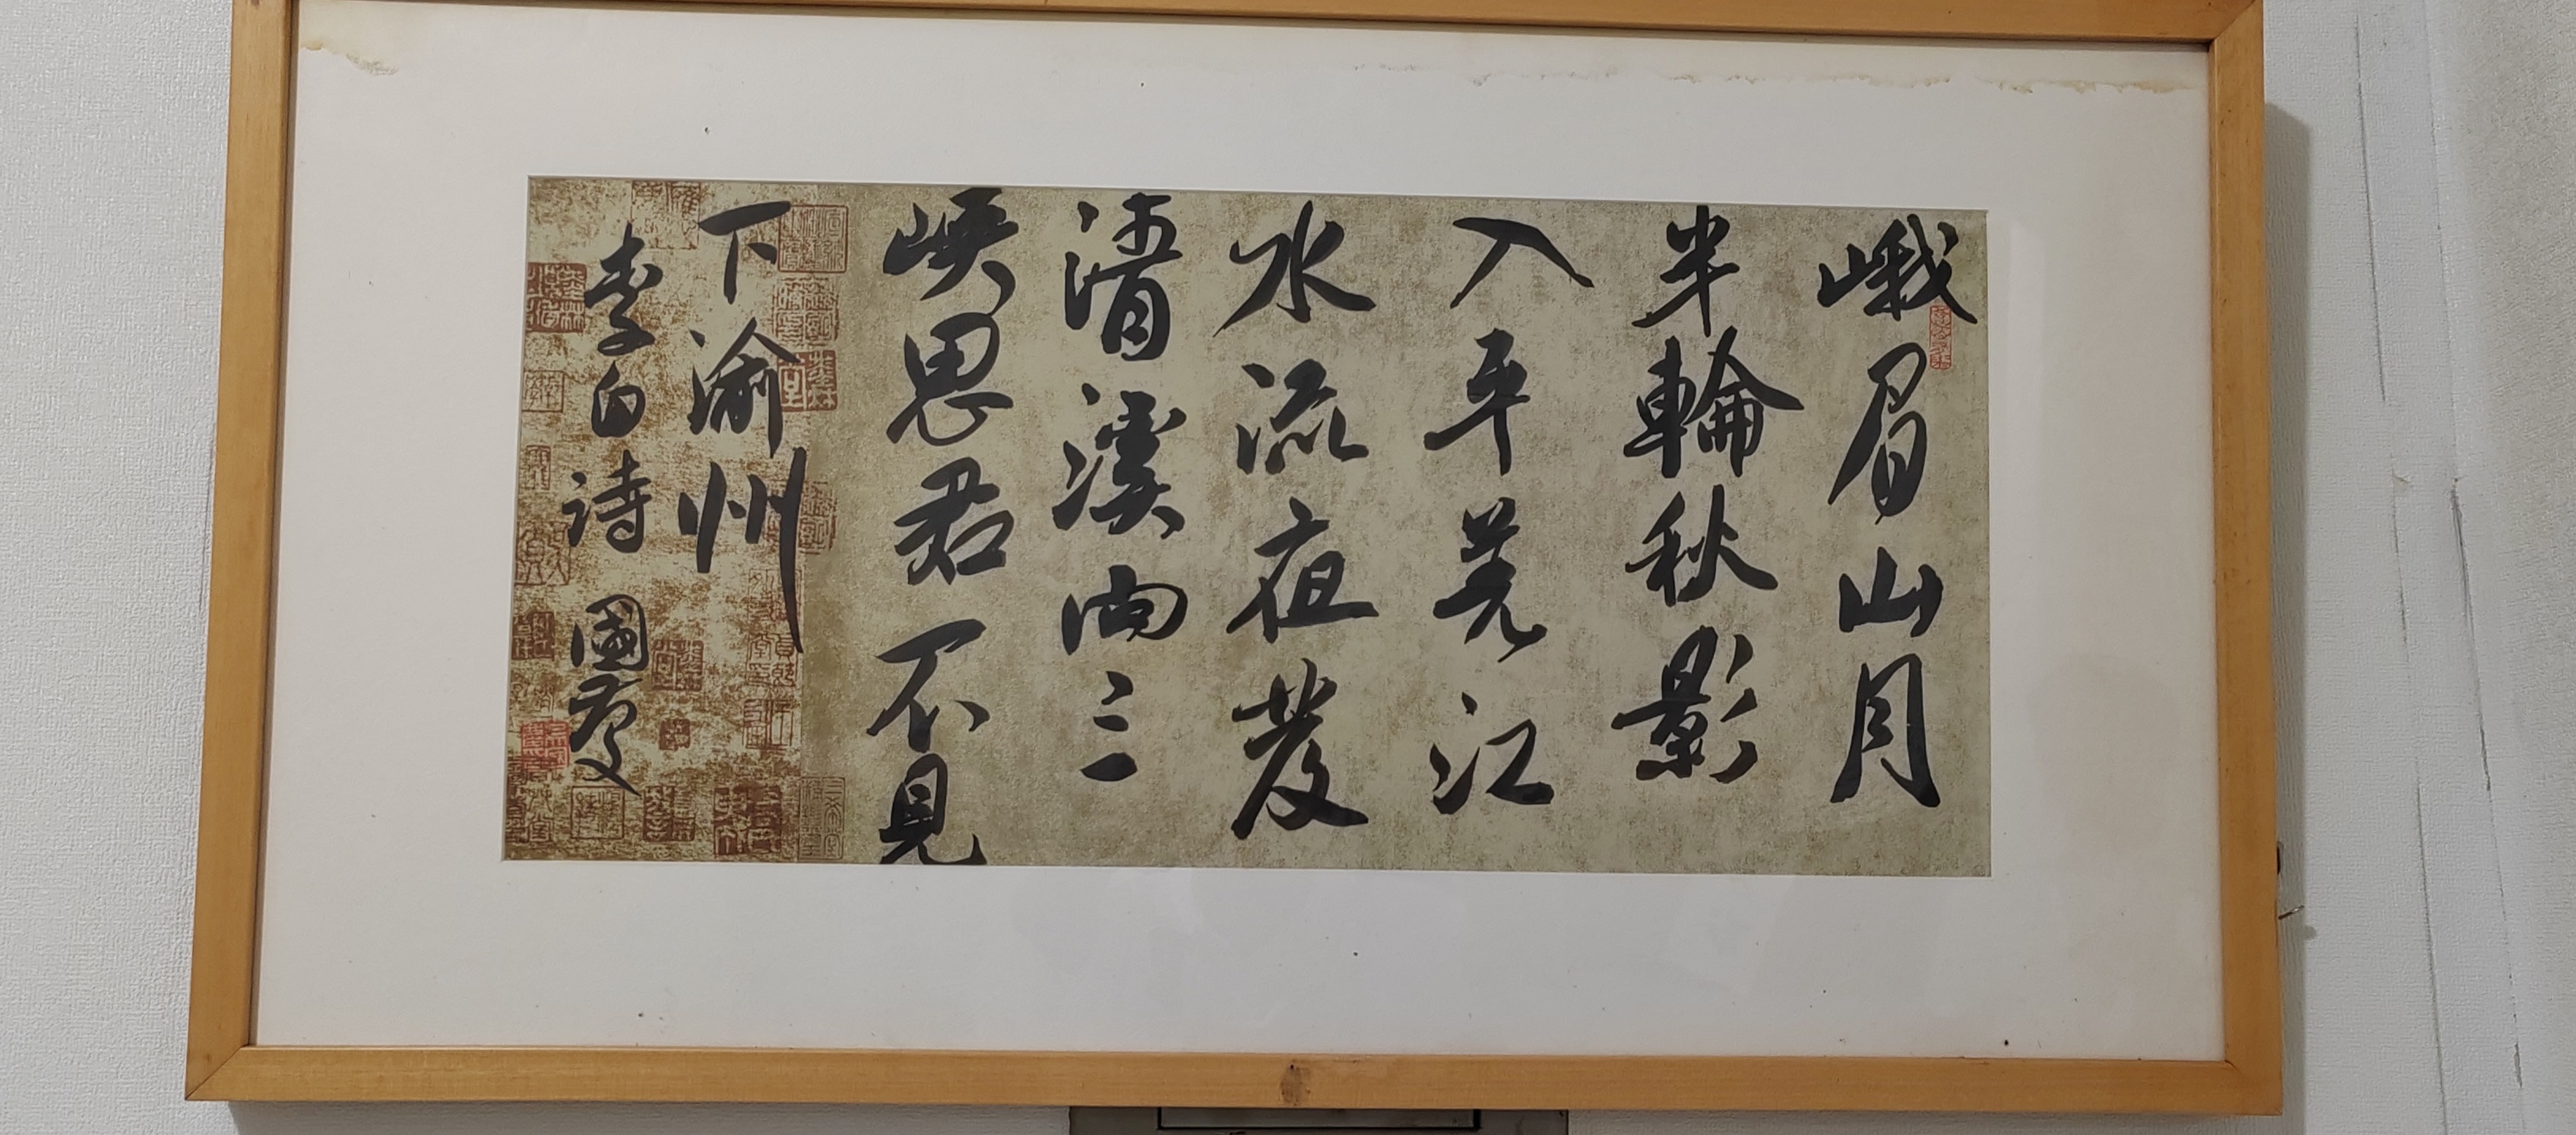 峨眉山月
半輪秋影
入平羌江
水流夜發
清溪向三
峽思君不見
下渝州
李白诗 國慶